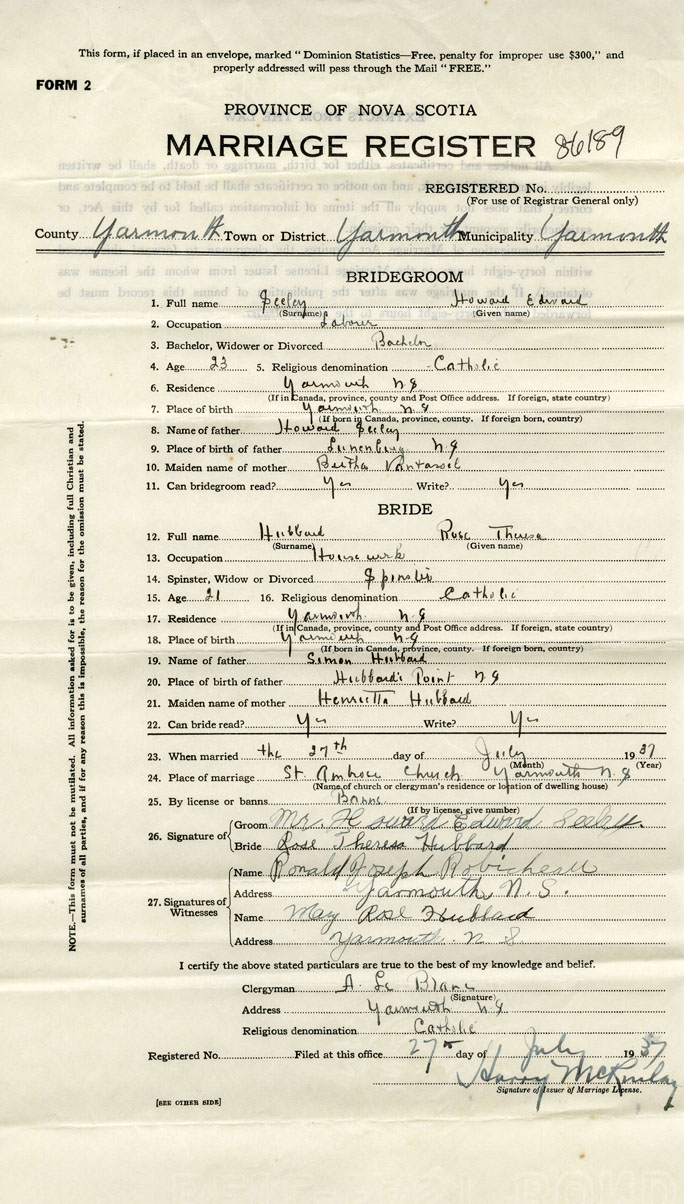 This form, if placed in an envelope, marked "Dominion Statistics—Free, penalty for improper use $300," and
properly addressed will pass through the Mail "FREE."
FORM 2
PROVINCE OF NOVA SCOTIA
MARRIAGE REGISTER 86189
REGISTERED No.
(For use of Registrar General only)
County Yarmouth Town or District Yarmouth Municipality Yarmouth
BRIDEGROOM
1. Full name Seeley Howard Edward
(Surname) (Given name)
2. Occupation Laborer
3. Bachelor, Widower or Divorced Bachelor
4. Age 23 5. Religious denomination Catholic
6. Residence Yarmouth N S
(If in Canada, province, county and Post Office address. If foreign, state country)
7. Place of birth Yarmouth N S
(If born in Canada, province, county. If foreign born, country)
8. Name of father Howard Seeley
9. Place of birth of father Lunenburg N S
10. Maiden name of mother Bertha Vantassel
11. Can bridegroom read? Yes Write? Yes
BRIDE
12. Full name Hubbard Rose Theresa
(Surname) (Given name)
13. Occupation Housework
14. Spinster, Widow or Divorced Spinster
15. Age 21 16. Religious denomination Catholic
17. Residence Yarmouth N S
(If in Canada, province, county and Post Office address. If foreign, state country)
18. Place of birth Yarmouth N S
(If born in Canada, province, county. If foreign born, country)
19. Name of father Simon Hubbard
20. Place of birth of father Hubbard's Point N S
21. Maiden name of mother Henrietta Hubbard
22. Can bride read? Yes Write? Yes
23. When married the 27th day of July 1937
(Month) (Year)
24. Place of marriage St. Ambrose Church Yarmouth N. S
(Name of church or clergyman's residence or location of dwelling house)
25. By license or banns Banns
(If by license, give number)
26. Signature of
Groom Mr. Howard Edward Seeley.
Bride Rose Theresa Hubbard
27. Signatures of Witnesses
Name Ronald Joseph Robicheau
Address Yarmouth, N. S.
Name May Rose Hubbard
Address Yarmouth. N S
I certify the above stated particulars are true to the best of my knowledge and belief.
Clergyman A. Le Blanc
(Signature)
Address Yarmouth N S
Religious denomination Catholic
Registered No. Filed at this office 27th day of July 1937
Harry McKinlay
Signature of Issuer of Marriage License.
[SEE OTHER SIDE]
NOTE.—This form must not be mutilated. All information asked for is to be given, including full Christian and
surnames of all parties, and if for any reason this is impossible, the reason for the omission must be stated.